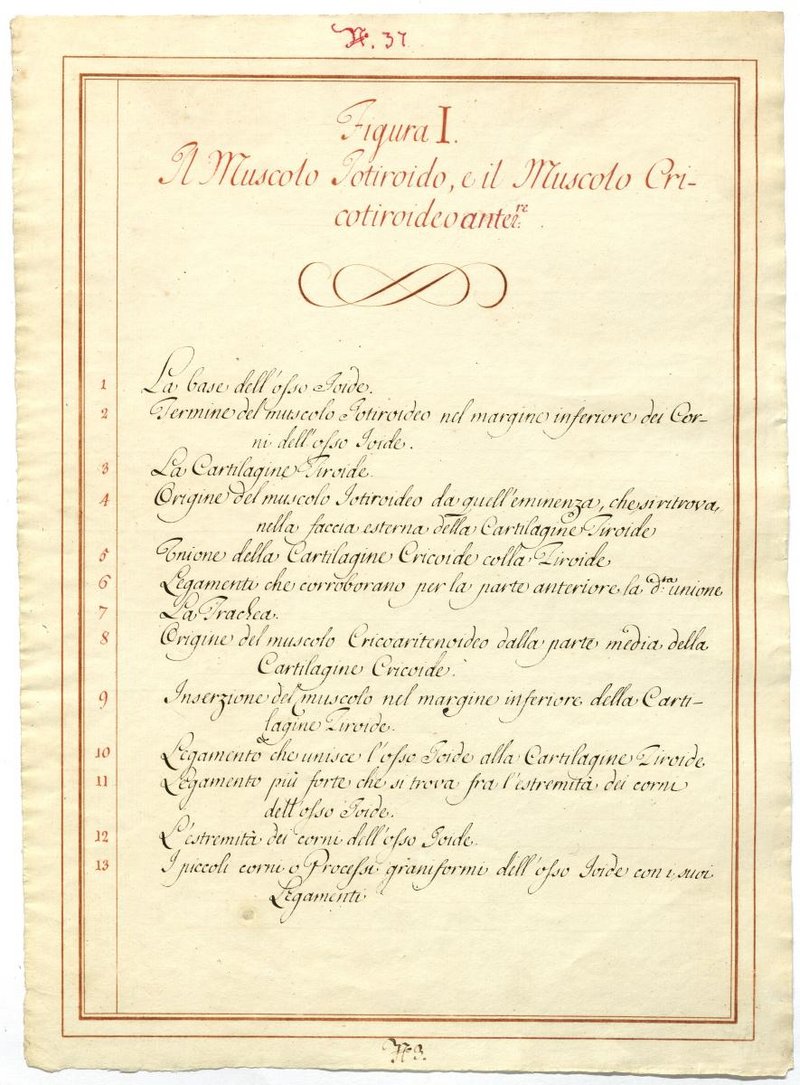 N.º 37
Figura I.
Il Muscolo Jotiroido, e il Muscolo Cri-
cotiroideo anterre.
1 La base dell'osso Joide.
2 Termine del muscolo Jotiroideo nel margine inferiore dei Cor-
ni dell'osso Joide.
3 La Cartilagine Tiroide
4 Origine del muscolo Jotiroideo da quell'eminenza, che si ritrova,
nella faccia esterna della Cartilagine Tiroide
5 Unione della Cartilagine Cricoide colla Tiroide
6 Legamenti che corroborano per la parte anteriore la d.ta unione
7 La Trachea.
8 Origine del muscolo Cricoaritenoideo dalla parte media della
Cartilagine Cricoide.
9 Inserzione del muscolo nel margine inferiore della Carti-
lagine Tiroide.
10 Legamento che unisce l'osso Joide alla Cartilagine Tiroide
11 Legamento più forte che si trova fra l'estremità dei corni
dell'osso Joide.
12 L'estremità dei corni dell'osso Joide.
13 I piccoli corni o Processi graniformi dell'osso Joide con i suoi
Legamenti
Nº 3.